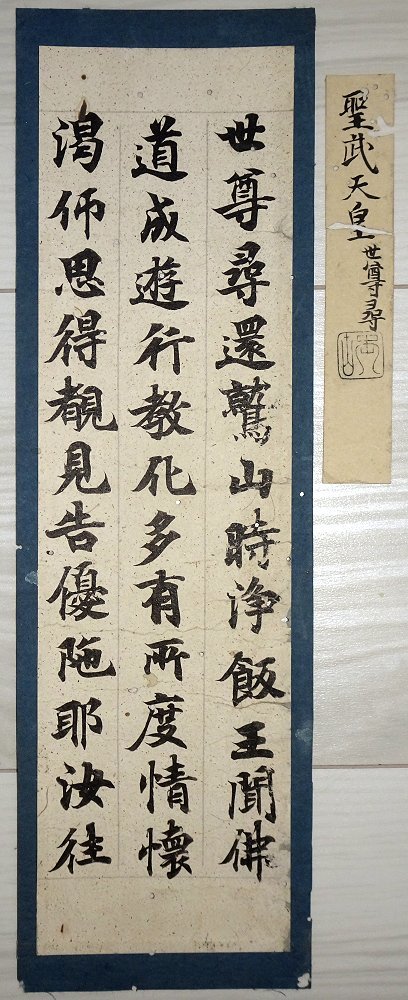 聖武天皇 世尊尋
世尊尋還鷲山時浄飯王聞佛
道成遊行教化多有所度情懐
渇仰思得覩見告優陁耶汝往